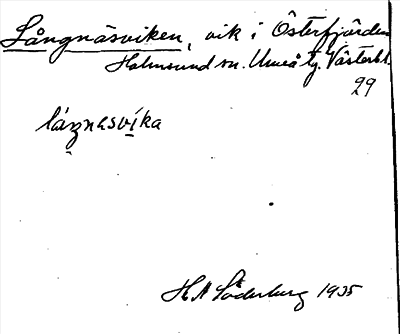 Långnäsviken, vik i Österfjärden
Holmsund sn. Umeå tg. Västerb. l.
29
láŋnəsvíka
H A Söderberg 1935